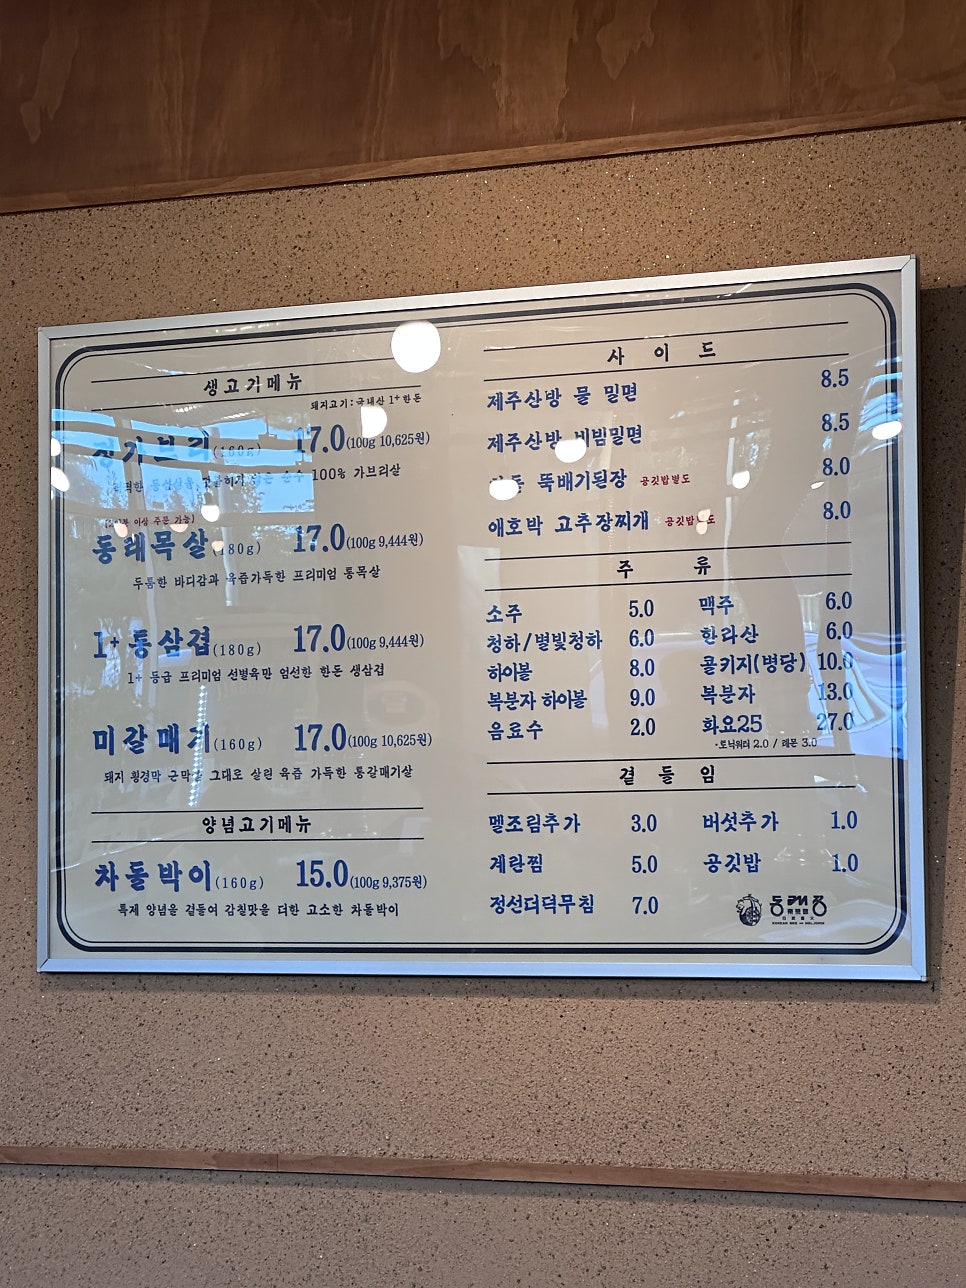 생고기메뉴
돼지고기:국내산 1+한돈
17.0(100g 10,625원)
100% 가브리살
통래목살(180g) 17.0(100g 9,444원)
두툼한 바디감과 육즙가득한 프리미엄 통목살
1+통삼겹(180g) 17.0(100g 9,444원)
1+ 등급 프리미엄 선별육만 엄선한 한돈 생삼겹
미갈매기(160g) 17.0(100g 10,625원)
돼지 횡경막 근막을 그대로 살린 육즙 가득한 통갈매기살
양념고기메뉴
차돌박이(160g) 15.0(100g 9,375원)
특제 양념을 곁들여 감칠맛을 더한 고소한 차돌박이
사이드
제주산방 물 밀면 8.5
제주산방 비빔밀면 8.5
뚝배기된장 공깃밥별도 8.0
애호박 고추장찌개 공깃밥별도 8.0
주류
소주 5.0 맥주 6.0
청하/별빛청하 6.0 한라산 6.0
하이볼 8.0 콜키지(병당) 10.0
복분자 하이볼 9.0 복분자 13.0
음료수 2.0 화요25 27.0
·토닉워터 2.0 / 레몬 3.0
곁들임
멜조림추가 3.0 버섯추가 1.0
계란찜 5.0 공깃밥 1.0
정선더덕무침 7.0